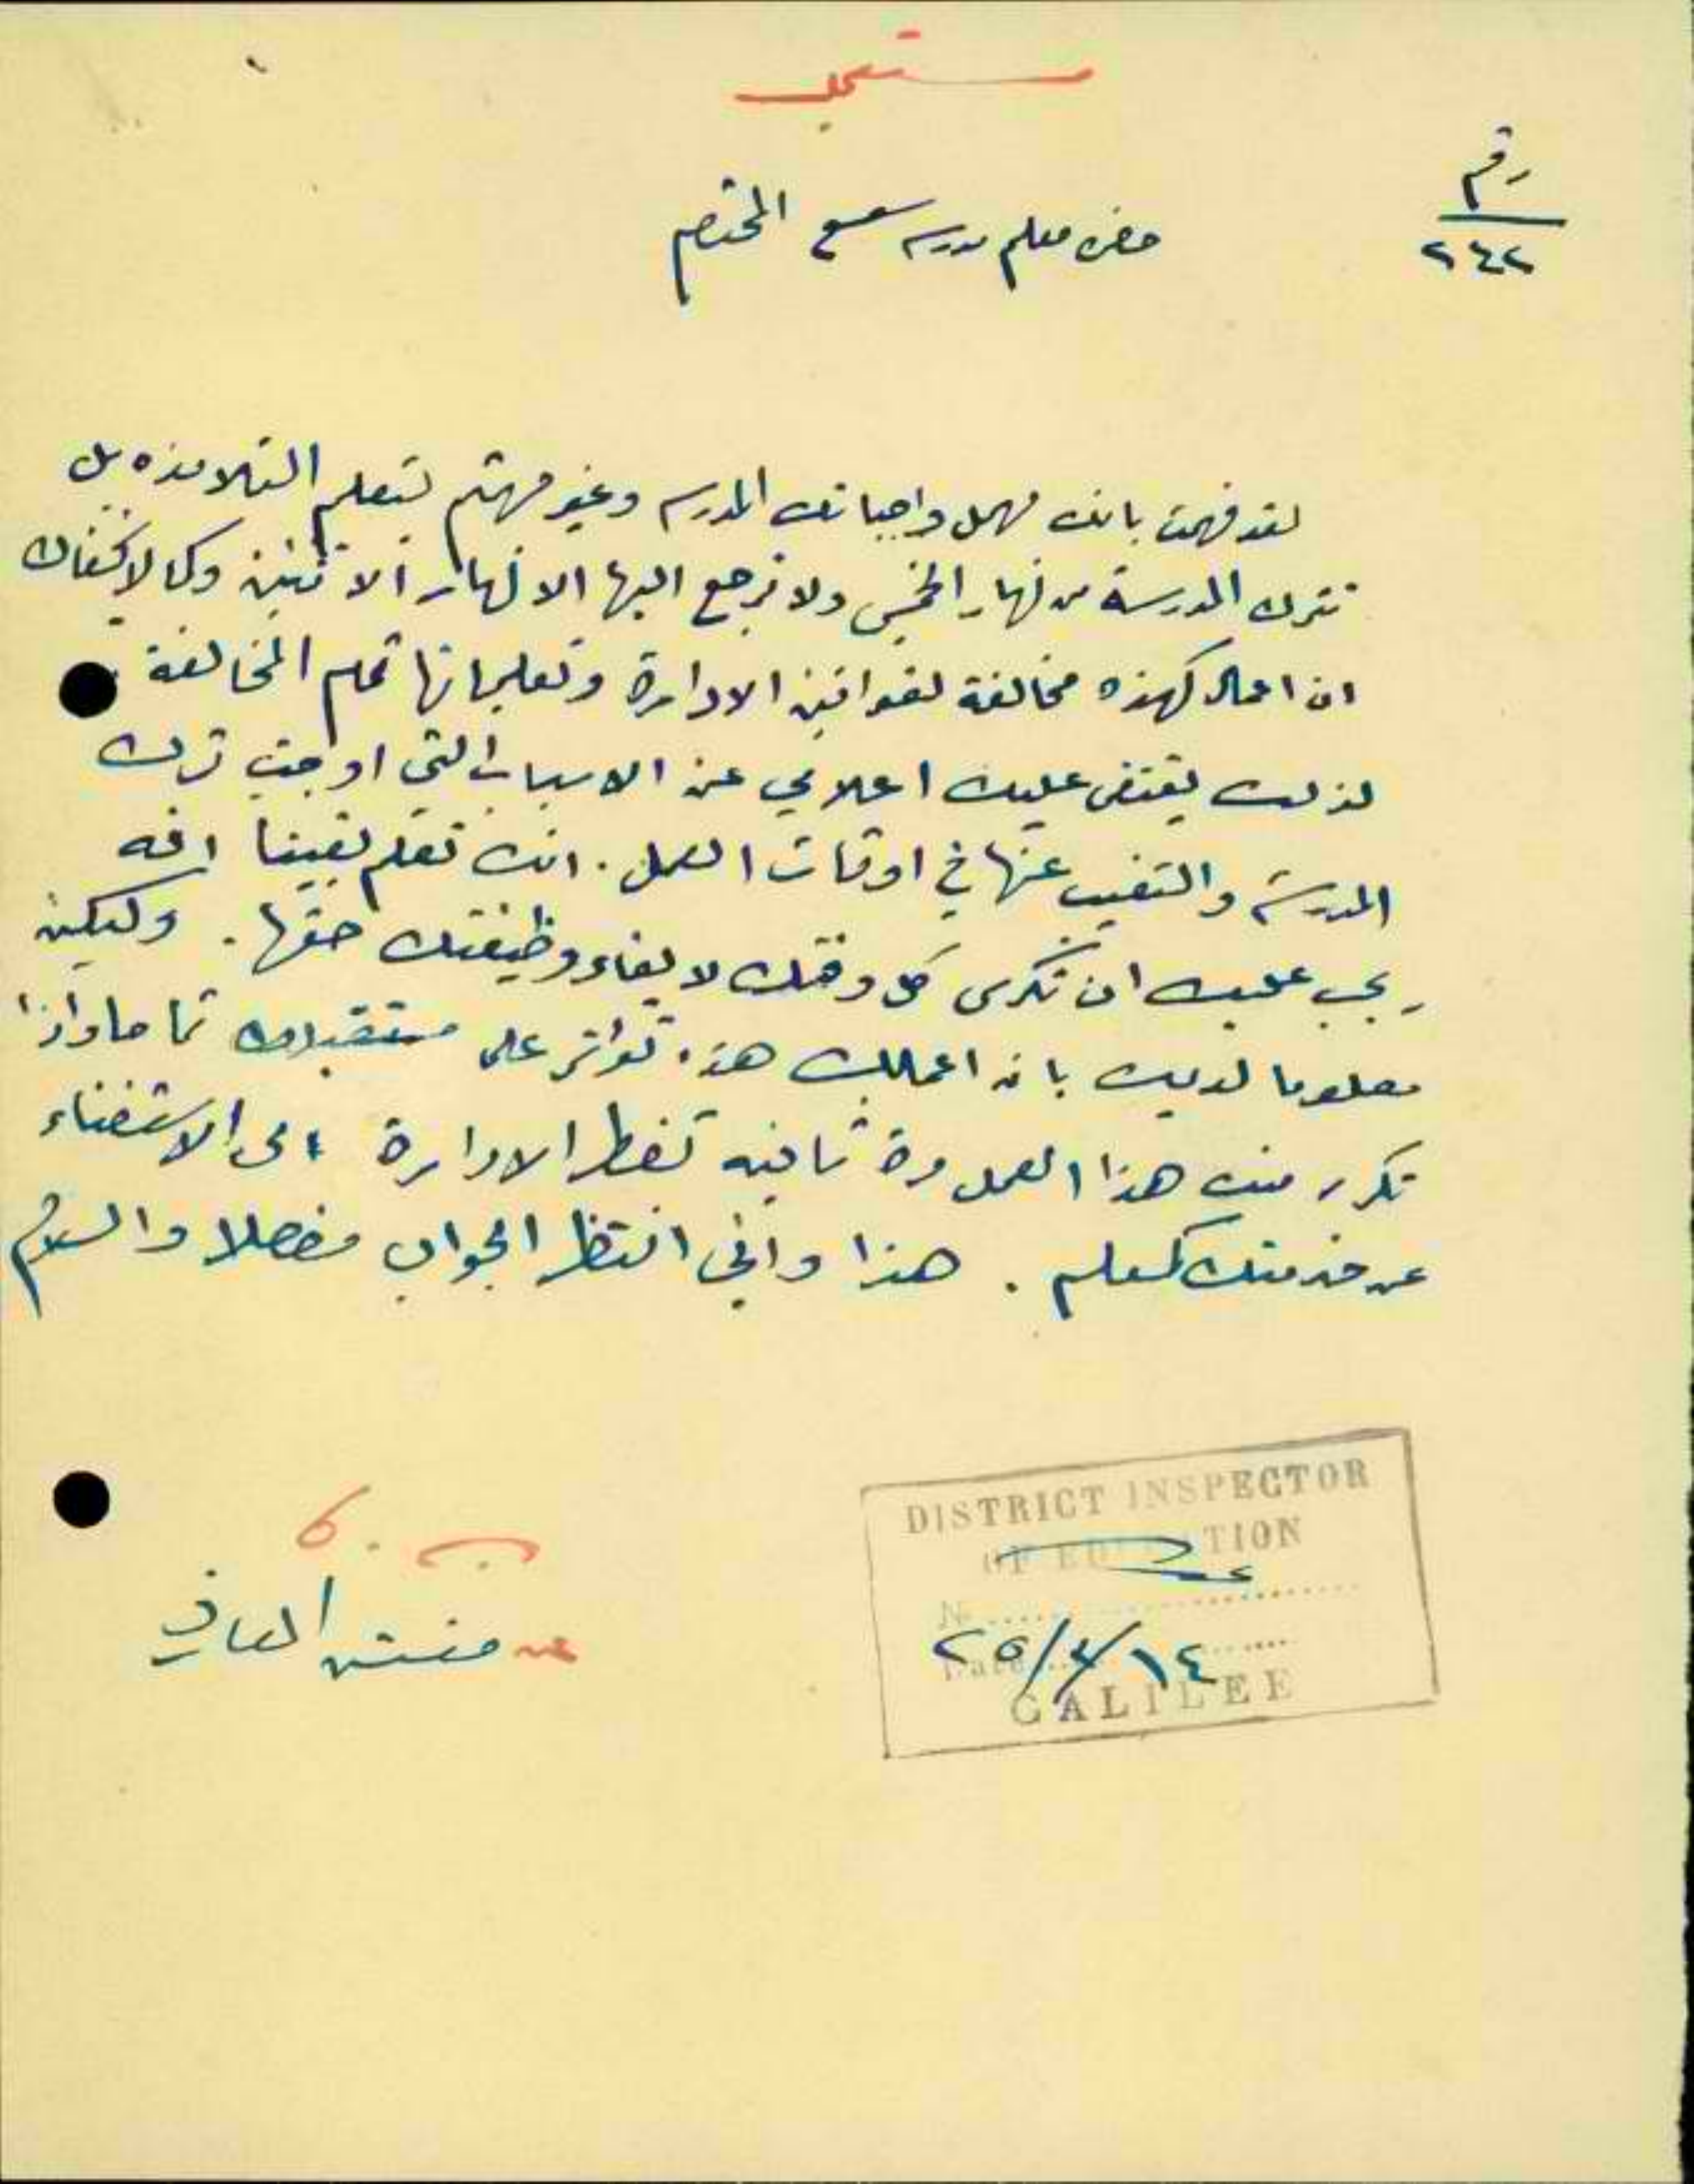 مستعجل
رقم
٢٤٢
حضرة معلم مدرسة سعسع المحترم
لقد فهمت بانك مهمل واجباتك المدرسه وغير مهتم بتعليم التلامذه بل
تترك المدرسة من نهار الخميس ولا ترجع اليها الا نهار الاثنين وكما لا يخفاك
ان اعمال كهذه مخالفة لقوانين الادارة وتعليماتها تمام المخالفة
لذلك يقتضى عليك اعلامي عن الاسباب التي اوجبت ترك
المدرسة والتغيب عنها في اوقات العمل. انك تعلم يقينا انه
يجب عليك ان تكرس كل وقتك لايفاء وظيفتك حقها. وليكن
معلوما لديك بان اعمالك هذه تؤثر على مستقبلك تماما واذا
تكرر منك هذا العمل مرة ثانيه تضطر الادارة الى الاستغناء
عن خدمتك كمعلم. هذا واني انتظر الجواب مفصلا والسلام
DISTRICT INSPECTOR
OF EDUCATION
No
٢٥/٤/١٤
Date
GALILEE
عن مفتش المعارف